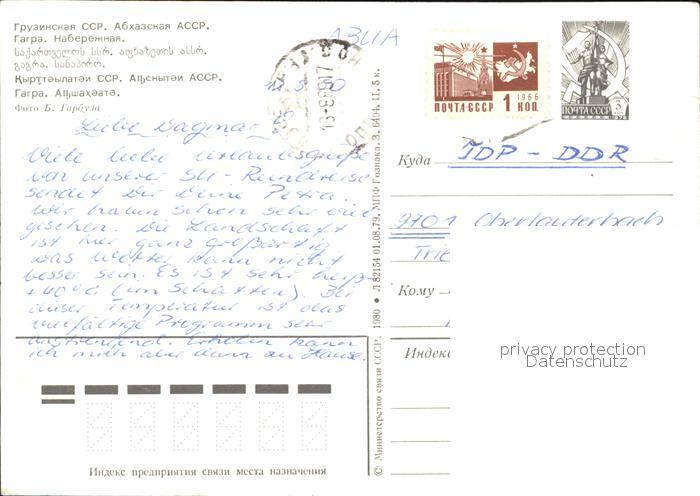 Грузинская ССР. Абхазская АССР.
Гагра. Набережная.
საქართველოს სსრ. აფხაზეთის ასსრ.
გაგრა. სანაპირო.
Қырҭтәылатәи ССР. Аԥснытәи АССР.
Гагра. Аԥшаҳәаҭә.
Фото Б. Гарбуза
АВИА
ПОЧТА СССР 1 КОП.
1966
ПОЧТА СССР 3
1976
Liebe Dagmar
Viele liebe Urlaubsgrüße
von unserer SU-Rundreise
sendet Dir Deine Petra.
Wir haben schon sehr viel
gesehen. Die Landschaft
ist hier ganz großartig
das Wetter kann nicht
besser sein. Es ist sehr heiß
+40°C (im Schatten). Bei
dieser Temperatur ist das
vielfältige Programm sehr
anstrengend. Erholen kann
ich mich aber dann zu Hause.
Куда IDP - DDR
9701 Oberlauterbach
Trie
Кому
Индекс
privacy protection
Datenschutz
Индекс предприятия связи места назначения
© Министерство связи СССР. 1980 ● Л 82154 01.08.79. МПФ Гознака. З. 6404. Ц. 5 к.